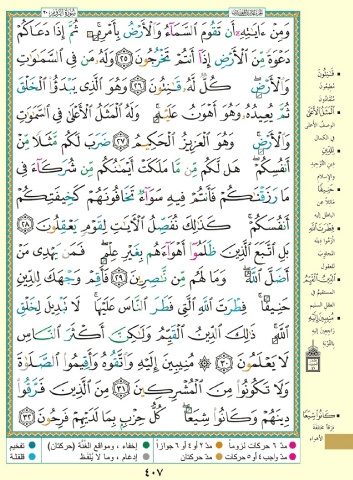 سُورَةُ الرُّومِ ٣٠
وَمِنْ ءَايَـٰتِهِۦٓ أَن تَقُومَ ٱلسَّمَآءُ وَٱلْأَرْضُ بِأَمْرِهِۦ ۚ ثُمَّ إِذَا دَعَاكُمْ
دَعْوَةً مِّنَ ٱلْأَرْضِ إِذَآ أَنتُمْ تَخْرُجُونَ ٢٥ وَلَهُۥ مَن فِى ٱلسَّمَـٰوَٰتِ
وَٱلْأَرْضِ ۖ كُلٌّ لَّهُۥ قَـٰنِتُونَ ٢٦ وَهُوَ ٱلَّذِى يَبْدَؤُا۟ ٱلْخَلْقَ
ثُمَّ يُعِيدُهُۥ وَهُوَ أَهْوَنُ عَلَيْهِ ۚ وَلَهُ ٱلْمَثَلُ ٱلْأَعْلَىٰ فِى ٱلسَّمَـٰوَٰتِ
وَٱلْأَرْضِ ۚ وَهُوَ ٱلْعَزِيزُ ٱلْحَكِيمُ ٢٧ ضَرَبَ لَكُم مَّثَلًا مِّنْ
أَنفُسِكُمْ ۖ هَل لَّكُم مِّن مَّا مَلَكَتْ أَيْمَـٰنُكُم مِّن شُرَكَآءَ فِى
مَا رَزَقْنَـٰكُمْ فَأَنتُمْ فِيهِ سَوَآءٌ تَخَافُونَهُمْ كَخِيفَتِكُمْ
أَنفُسَكُمْ ۚ كَذَٰلِكَ نُفَصِّلُ ٱلْـَٔايَـٰتِ لِقَوْمٍ يَعْقِلُونَ ٢٨
بَلِ ٱتَّبَعَ ٱلَّذِينَ ظَلَمُوٓا۟ أَهْوَآءَهُم بِغَيْرِ عِلْمٍ ۖ فَمَن يَهْدِى مَنْ
أَضَلَّ ٱللَّهُ ۖ وَمَا لَهُم مِّن نَّـٰصِرِينَ ٢٩ فَأَقِمْ وَجْهَكَ لِلدِّينِ
حَنِيفًا ۚ فِطْرَتَ ٱللَّهِ ٱلَّتِى فَطَرَ ٱلنَّاسَ عَلَيْهَا ۚ لَا تَبْدِيلَ لِخَلْقِ
ٱللَّهِ ۚ ذَٰلِكَ ٱلدِّينُ ٱلْقَيِّمُ وَلَـٰكِنَّ أَكْثَرَ ٱلنَّاسِ
لَا يَعْلَمُونَ ٣٠ مُنِيبِينَ إِلَيْهِ وَٱتَّقُوهُ وَأَقِيمُوا۟ ٱلصَّلَوٰةَ
وَلَا تَكُونُوا۟ مِنَ ٱلْمُشْرِكِينَ ٣١ مِنَ ٱلَّذِينَ فَرَّقُوا۟
دِينَهُمْ وَكَانُوا۟ شِيَعًا ۖ كُلُّ حِزْبٍۭ بِمَا لَدَيْهِمْ فَرِحُونَ ٣٢
قَانِتُونَ
مُطِيعُونَ
مُنْقَادُونَ
الْمَثَلُ الْأَعْلَى
الوصفُ الأعلى
في الكمال
لِلدِّينِ
دينِ التوحيدِ
والإسلامِ
حَنِيفًا
مائلاً عن
الباطلِ إليه
فِطْرَتَ اللَّهِ
الدِّينُ الْقَيِّمُ
المستقيمُ في
العقلِ السليمِ
مُنِيبِينَ إِلَيْهِ
راجعينَ إليه
بالتوبةِ
كَانُوا شِيَعًا
فِرَقًا مختلفةَ
الأهواءِ
مدّ ٦ حركات لزوماً
مدّ ٢ أو ٤ أو ٦ جوازاً
إخفاء، ومواقع الغُنَّة (حركتان)
تفخيم
مدّ واجب ٤ أو ٥ حركات
مدّ حركتان
إدغام، وما لا يُلفَظ
قلقلة
٤٠٧